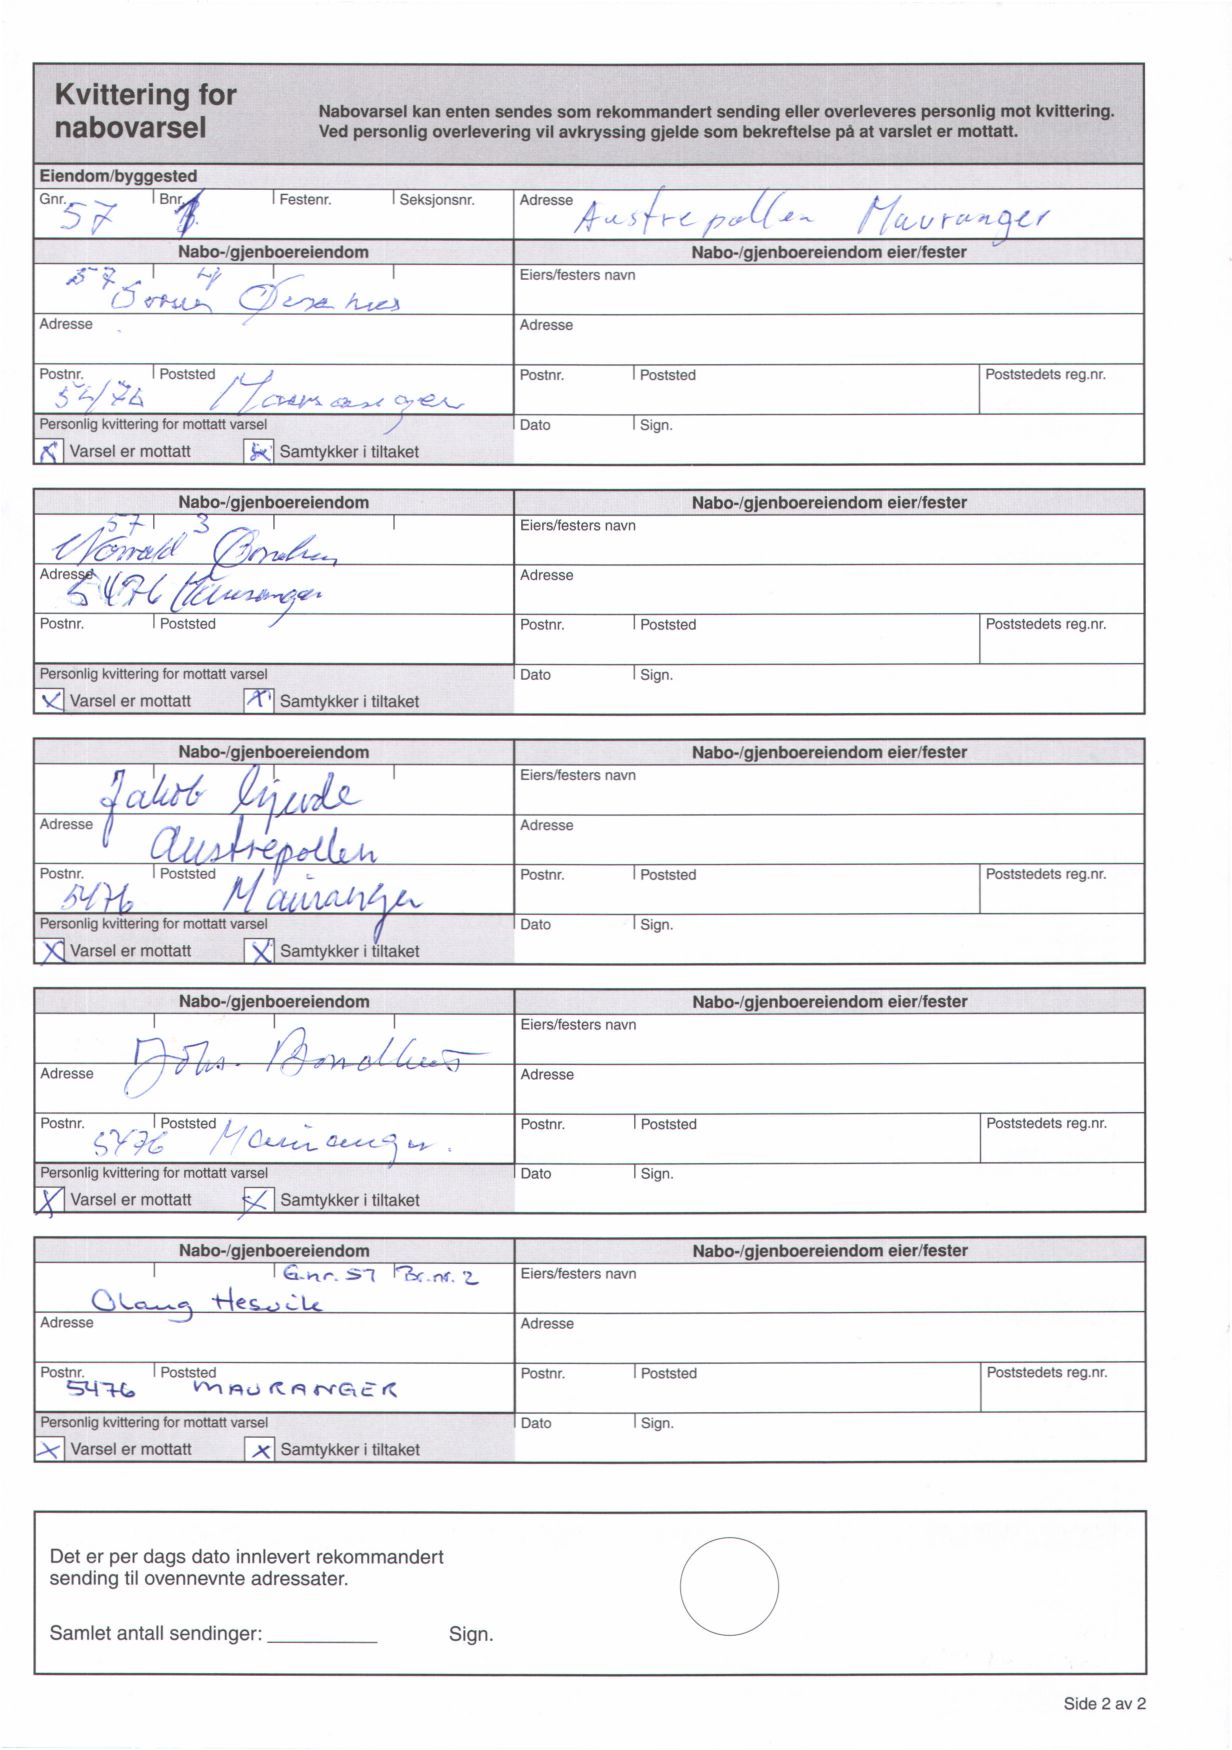 Kvittering for
nabovarsel
Nabovarsel kan enten sendes som rekommandert sending eller overleveres personlig mot kvittering.
Ved personlig overlevering vil avkryssing gjelde som bekreftelse på at varslet er mottatt.
Eiendom/byggested
Gnr. Bnr. Festenr. Seksjonsnr. Adresse
57 Austrepollen Mauranger
Nabo-/gjenboereiendom Nabo-/gjenboereiendom eier/fester
57 4 Eiers/festers navn
Adresse Adresse
Postnr. Poststed Postnr. Poststed Poststedets reg.nr.
Mauranger
Personlig kvittering for mottatt varsel Dato Sign.
x Varsel er mottatt x Samtykker i tiltaket
Nabo-/gjenboereiendom Nabo-/gjenboereiendom eier/fester
57 3 Eiers/festers navn
Adresse Adresse
5476 Mauranger
Postnr. Poststed Postnr. Poststed Poststedets reg.nr.
Personlig kvittering for mottatt varsel Dato Sign.
x Varsel er mottatt x Samtykker i tiltaket
Nabo-/gjenboereiendom Nabo-/gjenboereiendom eier/fester
Eiers/festers navn
Jakob
Adresse Adresse
Austrepollen
Postnr. Poststed Postnr. Poststed Poststedets reg.nr.
5476 Mauranger
Personlig kvittering for mottatt varsel Dato Sign.
x Varsel er mottatt x Samtykker i tiltaket
Nabo-/gjenboereiendom Nabo-/gjenboereiendom eier/fester
Eiers/festers navn
Johs. Bondhus
Adresse Adresse
Postnr. Poststed Postnr. Poststed Poststedets reg.nr.
5476 Mauranger.
Personlig kvittering for mottatt varsel Dato Sign.
x Varsel er mottatt x Samtykker i tiltaket
Nabo-/gjenboereiendom Nabo-/gjenboereiendom eier/fester
G.nr. 57 Br.nr. 2 Eiers/festers navn
Olaug Hesvik
Adresse Adresse
Postnr. Poststed Postnr. Poststed Poststedets reg.nr.
5476 MAURANGER
Personlig kvittering for mottatt varsel Dato Sign.
x Varsel er mottatt x Samtykker i tiltaket
Det er per dags dato innlevert rekommandert
sending til ovennevnte adressater.
Samlet antall sendinger: Sign.
Side 2 av 2